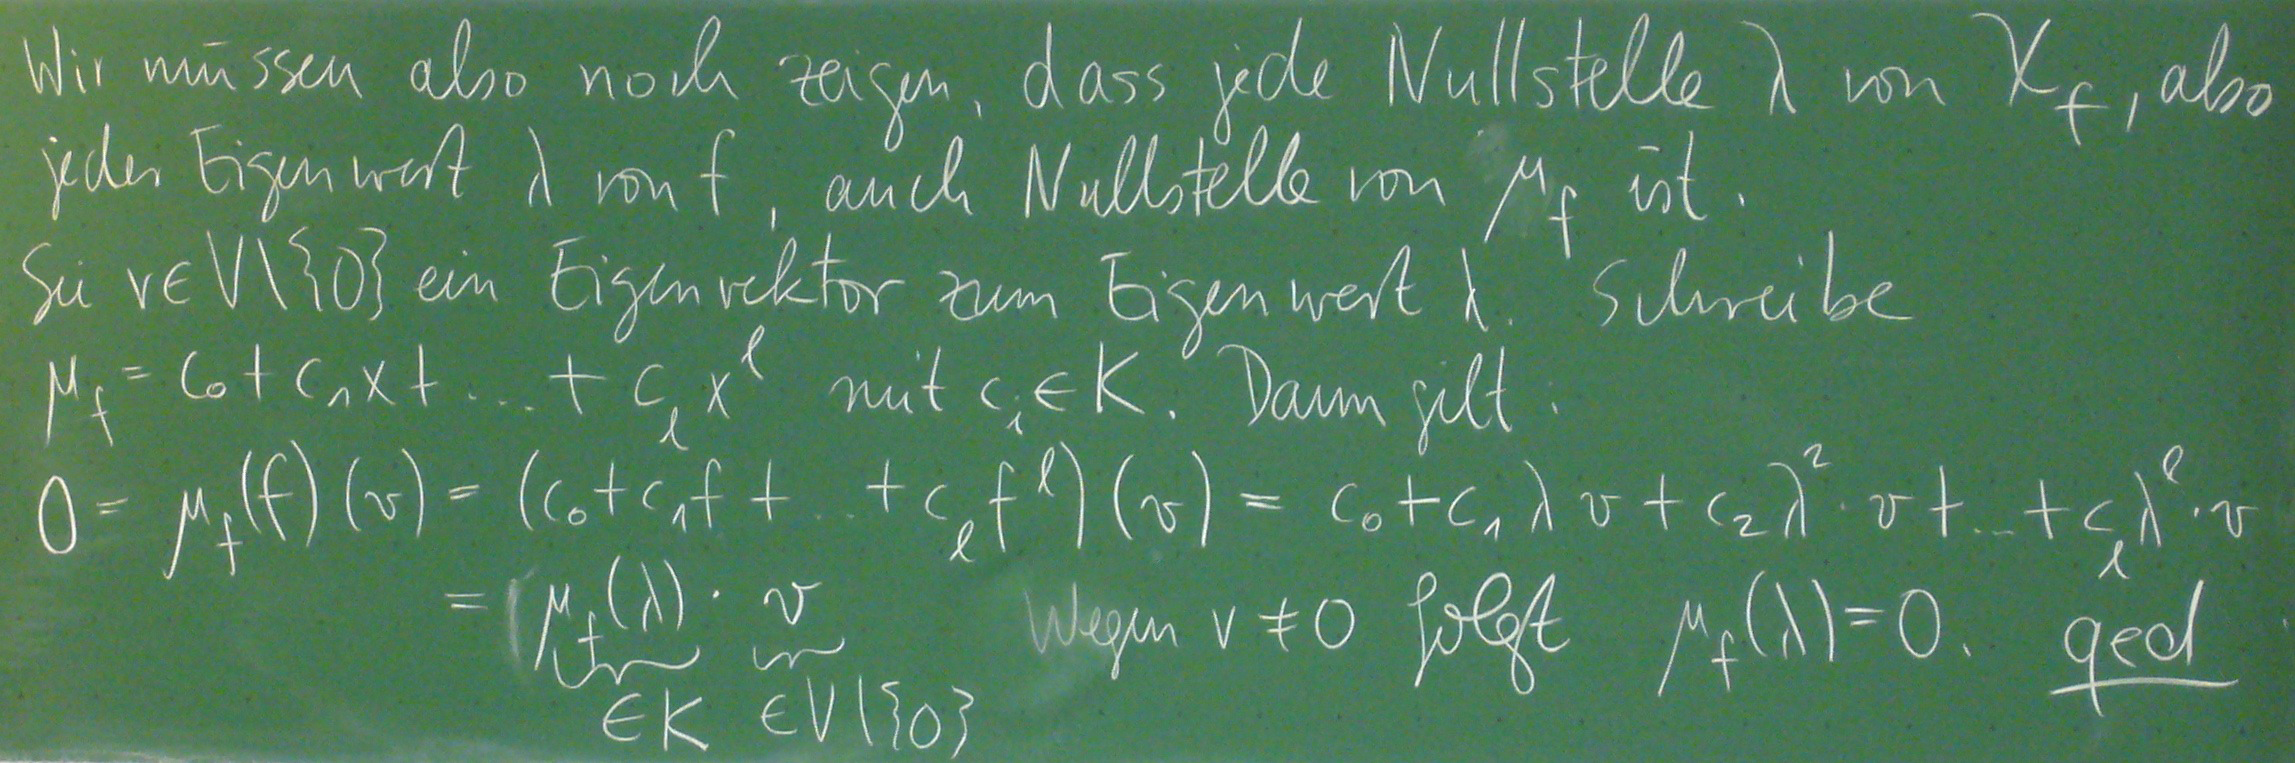 Wir müssen also noch zeigen, dass jede Nullstelle λ von χ_f, also
jeder Eigenwert λ von f, auch Nullstelle von μ_f ist.
Sei v∈V\{0} ein Eigenvektor zum Eigenwert λ. Schreibe
μ_f = c₀ + c₁x + ... + c_ℓ x^ℓ mit c_i ∈ K. Dann gilt:
0 = μ_f(f)(v) = (c₀ + c₁f + ... + c_ℓ f^ℓ)(v) = c₀ + c₁λv + c₂λ²·v + ... + c_ℓ λ^ℓ·v
= μ_f(λ) · v Wegen v ≠ 0 folgt μ_f(λ) = 0. qed
∈K ∈V\{0}